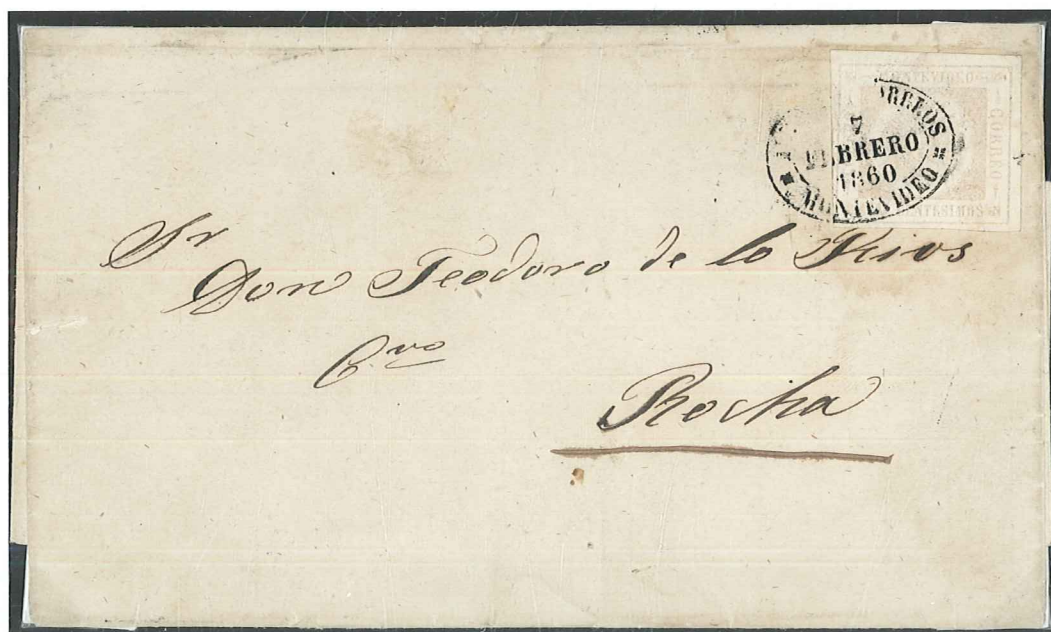 MONTEVIDEO
CORREO
CENTESIMOS
CORREOS
FEBRERO
1860
MONTEVIDEO
Sr
Don Teodoro de lo Rios
Rocha